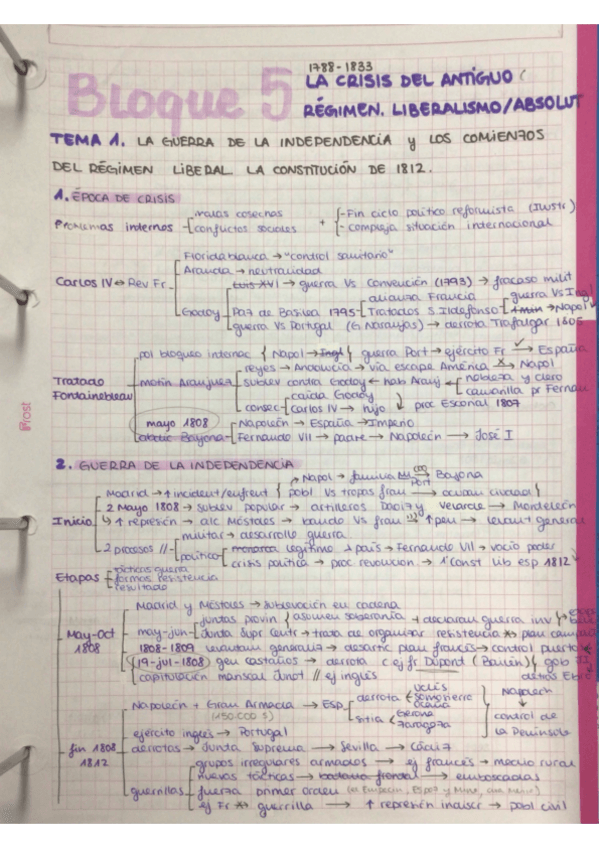 1788-1833
Bloque 5
LA CRISIS DEL ANTIGUO
RÉGIMEN. LIBERALISMO/ABSOLUT
TEMA 1. LA GUERRA DE LA INDEPENDENCIA y LOS COMIENZOS
DEL RÉGIMEN LIBERAL. LA CONSTITUCIÓN DE 1812.
1. ÉPOCA DE CRISIS
Problemas internos
malas cosechas
conflictos sociales
+
-Fin ciclo político reformista (Ilustr)
- compleja situación internacional
Carlos IV ↔ Rev Fr
Floridablanca → "control sanitario"
Aranda → neutralidad
Luis XVI → guerra Vs Convención (1793) → fracaso milit
Godoy
Paz de Basilea 1795
alianza Francia
Tratados S. Ildefonso
guerra Vs Ingl
Napol
guerra Vs Portugal (G Naranjas) → derrota Trafalgar 1805
Tratado
Fontainebleau
pol bloqueo internac { Napol → Ingl } guerra Port → ejército Fr → España
motín Aranjuez
reyes → Andalucía → vía escape América Napol
sublev contra Godoy ← hab Aranj
nobleza y clero
camarilla pr Fernan
consec
caída Godoy
Carlos IV → hijo
proc Escorial 1807
mayo 1808
Bayona
Napoleón → España → Imperio
Fernando VII → padre → Napoleón → José I
2. GUERRA DE LA INDEPENDENCIA
Napol → familia Port Bayona
Inicio
Madrid → ↑ incident/enfrent { pobl Vs tropas fran → ocupan ciudad }
2 Mayo 1808 → sublev popular → artilleros Daoiz y Velarde → Monteleón
↳ ↑ represión → alc Móstoles → bando Vs fran → levant general
2 procesos //
militar → desarrollo guerra
político
monarca legítimo país → Fernando VII → vacío poder
crisis política → proc revolucion → 1ª Const lib esp 1812
Etapas
tácticas guerra
formas resistencia
resultado
May-Oct
1808
Madrid y Móstoles → sublevación en cadena
may-jun
juntas provin } asumen soberanía + declaran guerra inv
Junta Supr Centr → trata de organizar resistencia plan
1808-1809 levantam generaliz → desartic plan francés → control puerto
(19-jul-1808) gen Castaños → derrota ej fr Dupont (Bailén) } gob
detrás Ebro
capitulación mariscal Junot // ej inglés
fin 1808
1812
Napoleón + Gran Armada → Esp
(150.000 s)
derrota
Uclés
Somosierra
Ocaña
sitia
Gerona
Zaragoza
Napoleón
↓
control de
la Península
ejército inglés → Portugal
derrotas → Junta Suprema → Sevilla → Cádiz
guerrillas
grupos irregulares armados → ej francés → medio rural
nuevas tácticas → batalla frontal → emboscadas
fuerza primer orden (el Empecin, Espoz y Mina, cura Merino)
ej Fr guerrilla → ↑ represión indiscr → pobl civil